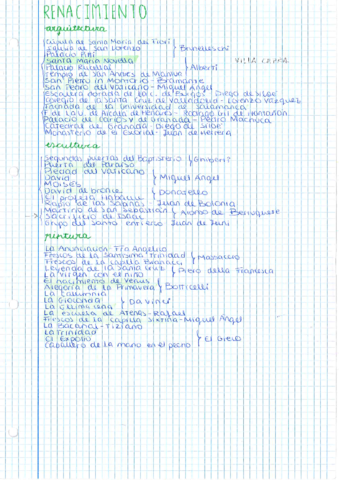 RENACIMIENTO
arquitectura
Cúpula de Santa María del Fiori
Iglesia de San Lorenzo } Brunelleschi
Palacio Pitti
Santa María Novella
Palacio Rucellai } Alberti
Templo de San Andrés de Mantua
San Pietro in Montorio - Bramante
San Pedro del Vaticano - Miguel Angel
Escalera dorada de la C. de Burgos - Diego de Siloe
Colegio de la Santa Cruz de Valladolid - Lorenzo Vázquez
Fachada de la Universidad de Salamanca
F. de la U. de Alcalá de Henares - Rodrigo Gil de Hontañón
Palacio de Carlos V de Granada - Pedro Machuca
Catedral de Granada - Diego de Siloe
Monasterio de El Escorial - Juan de Herrera
escultura
Segundas puertas del Baptisterio } Ghiberti
Puerta del Paraíso
Piedad del Vaticano
David } Miguel Angel
Moisés
David de bronce } Donatello
El profeta Habacuc
Rapto de las Sabinas - Juan de Bolonia
Martirio de San Sebastián } Alonso de Berruguete
Sacrificio de Isaac
Grupo del Santo entierro - Juan de Juni
pintura
La Anunciación - Fra Angelico
Fresco de la Santísima Trinidad } Masaccio
Frescos de la Capilla Brancacci
Leyenda de la Santa Cruz } Piero della Francesca
La Virgen con el niño
El nacimiento de Venus
Alegoría de la Primavera } Botticelli
La Calumnia
La Gioconda } Da Vinci
La última cena
La escuela de Atenas - Rafael
Frescos de la Capilla Sixtina - Miguel Angel
La Bacanal - Tiziano
La trinidad
El expolio } El Greco
Caballero de la mano en el pecho